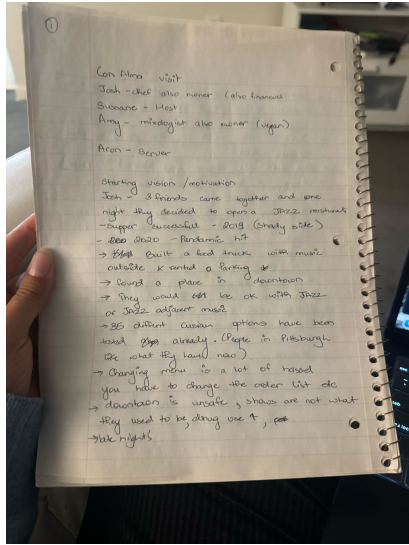 ①
Con Alma visit
Josh - chef also owner (also financial
Susane - Host
Amy - mixologist also owner (vegan)
Aron - Server
Starting vision / motivation
Josh - 3 friends came together and one
night they decided to open a JAZZ
- supper successful - 2019 (Shady side)
- 2020 - Pandamic hit
→ Built a food truck with music
outside & rented a Parking
→ found a place in downtown
→ They would be ok with JAZZ
or JAZZ adjacent music
→ 35 diffrent options have been
already. (People in Pittsburgh
like what they have)
→ Changing menu is a lot of
you have to change the order list etc
→ downtown is unsafe, shows are not what
they used to be, drug use ↑,
→ late nights